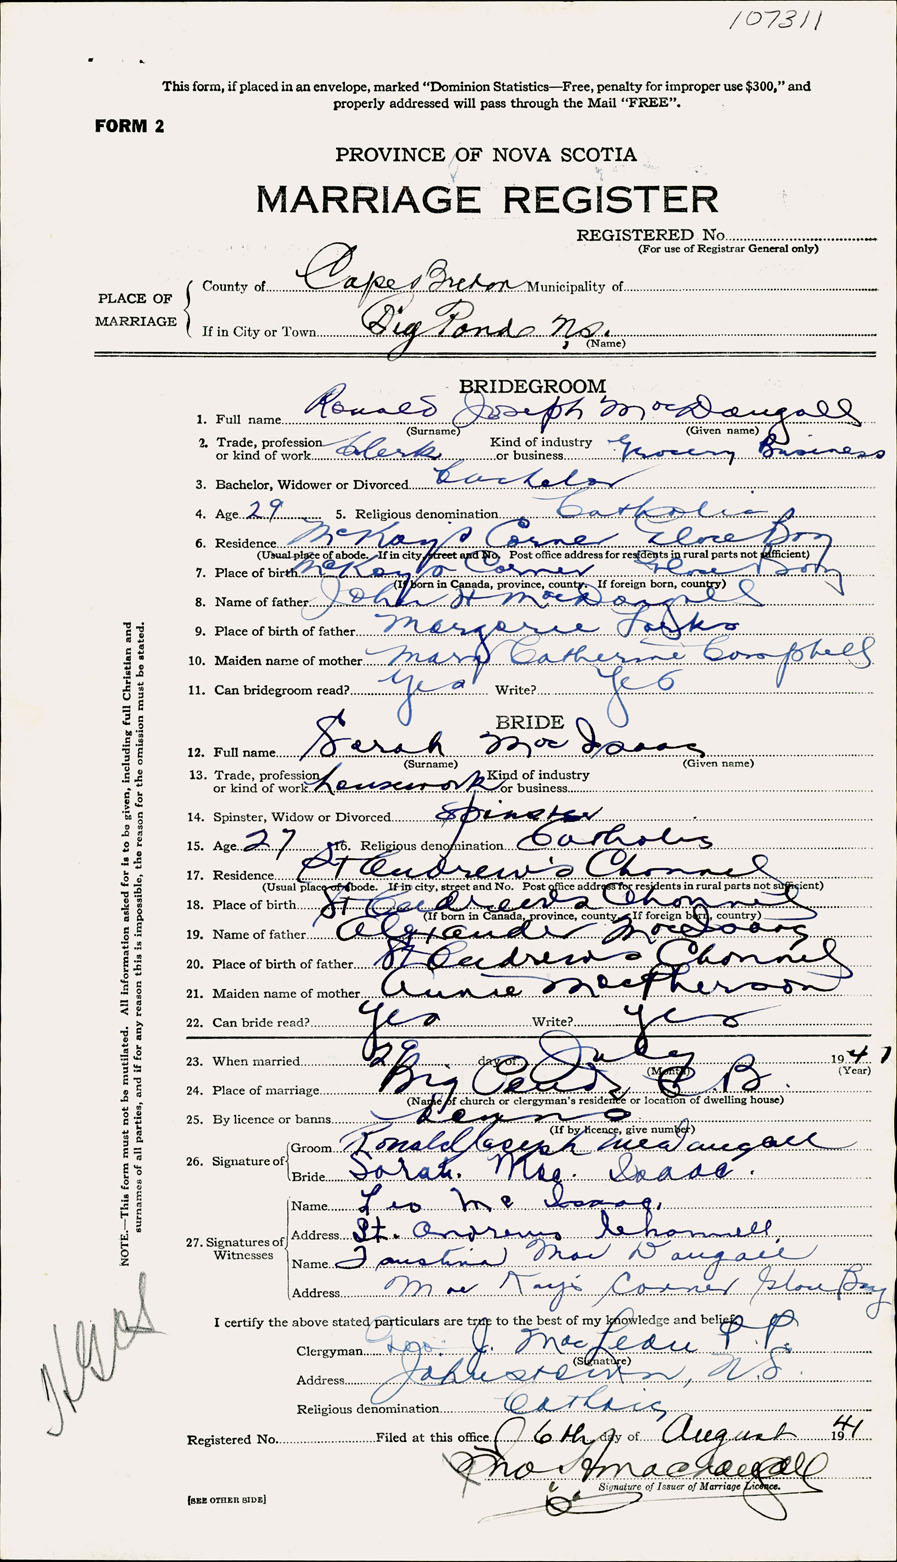 107311
This form, if placed in an envelope, marked "Dominion Statistics—Free, penalty for improper use $300," and
properly addressed will pass through the Mail "FREE".
FORM 2
PROVINCE OF NOVA SCOTIA
MARRIAGE REGISTER
REGISTERED No.
(For use of Registrar General only)
PLACE OF MARRIAGE
County of Cape Breton Municipality of
If in City or Town Big Pond N.S.
(Name)
BRIDEGROOM
1. Full name Ronald Joseph MacDougall
(Surname) (Given name)
2. Trade, profession or kind of work Clerk Kind of industry or business Grocery Business
3. Bachelor, Widower or Divorced bachelor
4. Age 29 5. Religious denomination Catholic
6. Residence McKays Corner Glace Bay
(Usual place of abode. If in city, street and No. Post office address for residents in rural parts not sufficient)
7. Place of birth McKays Corner Glace Bay
(If born in Canada, province, county. If foreign born, country)
8. Name of father John H MacDougall
9. Place of birth of father Margaree Forks
10. Maiden name of mother Mary Catherine Campbell
11. Can bridegroom read? Yes Write? Yes
BRIDE
12. Full name Sarah MacIsaac
(Surname) (Given name)
13. Trade, profession or kind of work housework Kind of industry or business
14. Spinster, Widow or Divorced Spinster
15. Age 27 16. Religious denomination Catholic
17. Residence St Andrew's Channel
(Usual place of abode. If in city, street and No. Post office address for residents in rural parts not sufficient)
18. Place of birth St Andrew's Channel
(If born in Canada, province, county. If foreign born, country)
19. Name of father Alexander MacIsaac
20. Place of birth of father St Andrews Channel
21. Maiden name of mother Annie MacPherson
22. Can bride read? Yes Write? Yes
23. When married 29 day of July 1941
(Month) (Year)
24. Place of marriage Big Pond, C B.
(Name of church or clergyman's residence or location of dwelling house)
25. By licence or banns banns
(If by licence, give number)
26. Signature of
Groom Ronald Joseph MacDougall
Bride Sarah. Mac. Isaac.
27. Signatures of Witnesses
Name Leo Mc Isaac,
Address St. Andrews Channell,
Name Faustina Mac Dougall
Address Mac Kay's Corner Glace Bay
I certify the above stated particulars are true to the best of my knowledge and belief.
Clergyman Geo. J. MacLean P.P.
(Signature)
Address Johnstown, N.S.
Religious denomination Catholic
Registered No. Filed at this office 6th day of August 1941
Signature of Issuer of Marriage Licence.
[SEE OTHER SIDE]
NOTE.—This form must not be mutilated. All information asked for is to be given, including full Christian and
surnames of all parties, and if for any reason this is impossible, the reason for the omission must be stated.